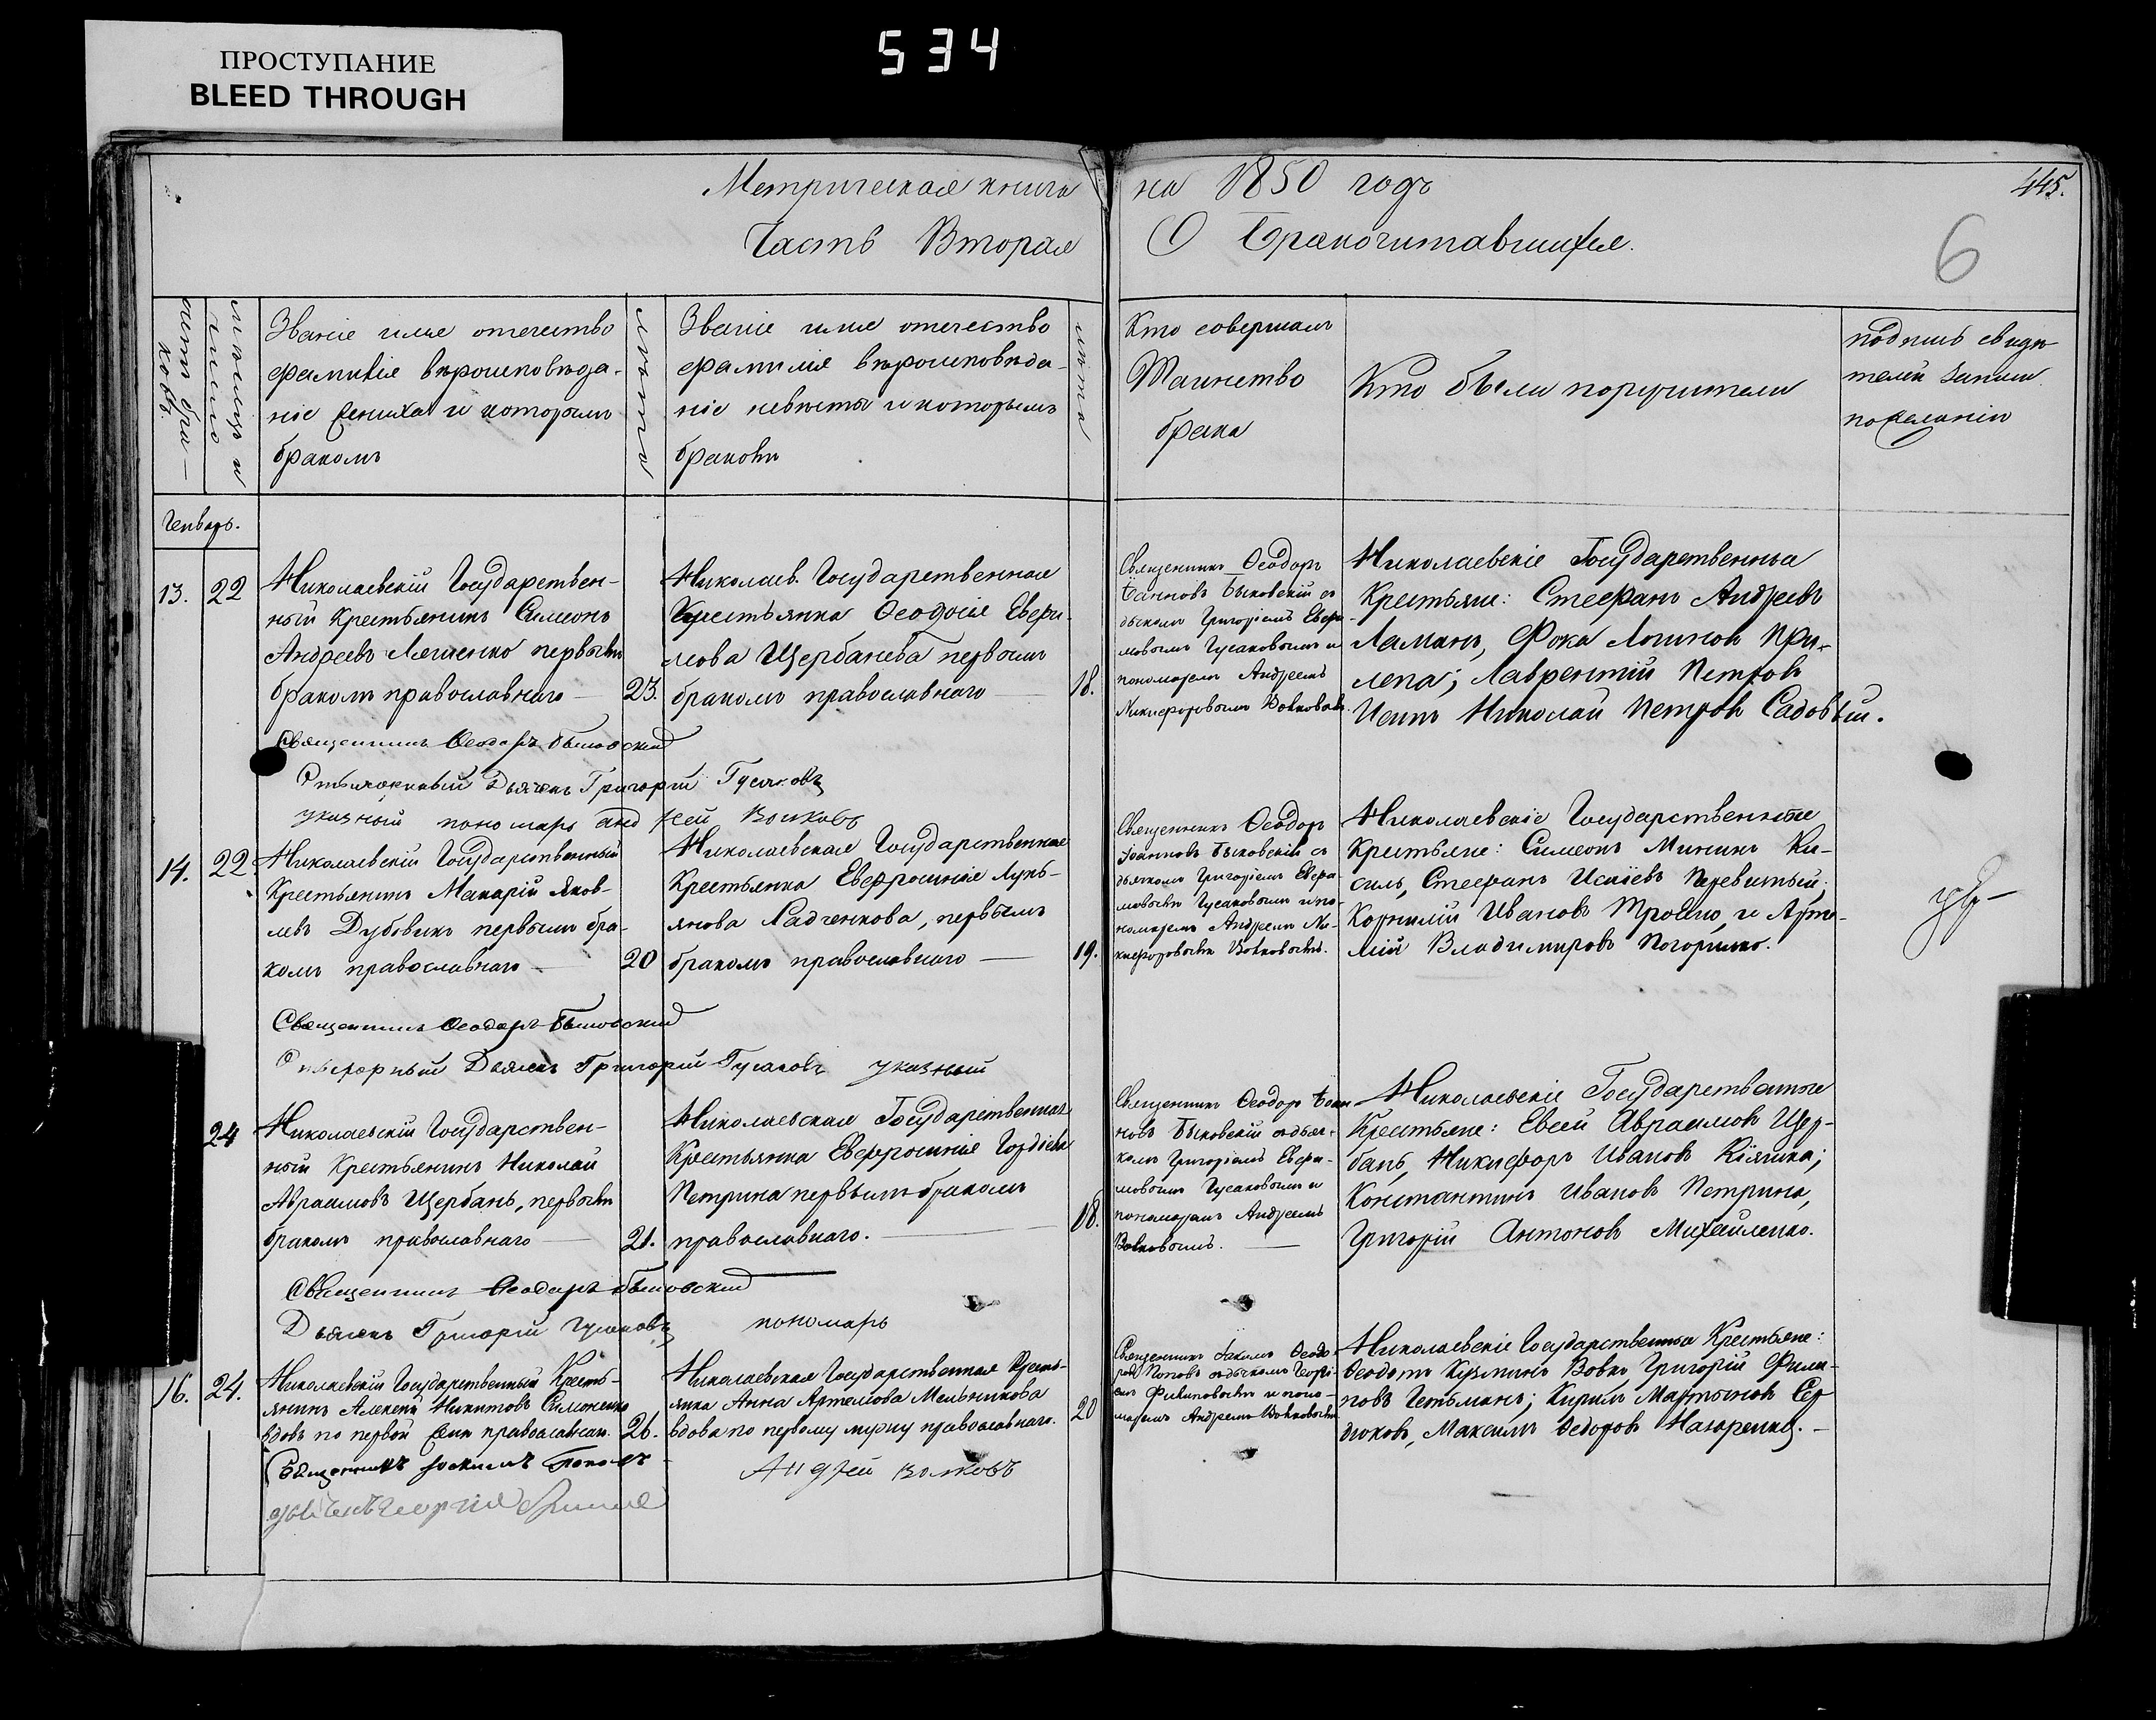 ПРОСТУПАНИЕ
BLEED THROUGH
534
Метрическая книга на 1850 годъ
445.
Часть Вторая О Бракочитавшихся.
6
Званіе имя отечество
фамилія вѣроисповѣда-
ніе жениха и которымъ
бракомъ
лѣта
Званіе имя отечество
фамилія вѣроисповѣда-
ніе невѣсты и которымъ
бракомъ
лѣта
Кто совершалъ
Таинство
брака
Кто были поручители
подпись свидѣ-
телей записи
по желанію
Генварь.
13. 22
Николаевскій Государствен-
ный Крестьянинъ Симеонъ
Андреевъ Ляшенко первымъ
бракомъ православнаго
23.
Николаев. Государственная
Крестьянка Ѳеодосія Евфи-
мова Щербанева первымъ
бракомъ православнаго
18.
Священникъ Ѳеодоръ
Іоанновъ Быковскій съ
дьякомъ Григоріемъ Евфи-
мовымъ Гусаковымъ и
пономаремъ Андреемъ
Никифоровымъ Волковымъ.
Николаевскіе Государственные
Крестьяне: Стефанъ Андреевъ
Ламанъ, Фока Логиновъ При-
лепа; Лаврентій Петровъ
Николай Петровъ Садовый.
Священникъ Ѳеодоръ Быковскій
Дьячекъ Григорій Гусаковъ
указный пономарь Андрей Волковъ
14. 22.
Николаевскій Государственный
Крестьянинъ Макарій Яков-
левъ Дубовикъ первымъ бра-
комъ православнаго
20
Николаевская Государственная
Крестьянка Евфросинія Лукь-
янова Радченкова, первымъ
бракомъ православнаго
19.
Священникъ Ѳеодоръ
Іоанновъ Быковскій съ
дьячкомъ Григоріемъ Евфи-
мовымъ Гусаковымъ и по-
номаремъ Андреемъ Ни-
кифоровымъ Волковымъ.
Николаевскіе Государственные
Крестьяне: Симеонъ Мининъ Ки-
силь, Стефанъ Исаіевъ Перевитый;
Корнилій Ивановъ Трошно, и Арте-
мій Владимировъ Погорилко.
Священникъ Ѳеодоръ Быковскій
Дьячекъ Григорій Гусаковъ указный
24
Николаевскій Государствен-
ный Крестьянинъ Николай
Авраамовъ Щербань, первымъ
бракомъ православнаго
21.
Николаевская Государственная
Крестьянка Евфросинія Гордіева
Петрина первымъ бракомъ
православнаго.
18.
Священникъ Ѳеодоръ Іоан-
новъ Быковскій съ дьяч-
комъ Григоріемъ Евфи-
мовымъ Гусаковымъ и
пономаремъ Андреемъ
Волковымъ.
Николаевскіе Государственные
Крестьяне: Евсей Авраамовъ Щер-
бань, Никифоръ Ивановъ Кіяшка;
Константинъ Ивановъ Петрина,
Григорій Антоновъ Михайленко.
Священникъ Ѳеодоръ Быковскій
Дьячекъ Григорій Гусаковъ пономарь
16. 24.
Николаевскій Государственный Кресть-
янинъ Алексѣй Никитовъ Симоненко
вдовъ по первой женѣ православнаго.
26.
Николаевская Государственная Кресть-
янка Анна Артемова Мельникова
вдова по первому мужу православнаго.
20
Священникъ Іакимъ Ѳеодо-
ровъ Поповъ съ дьячкомъ Георгі-
емъ Филиповымъ и поно-
маремъ Андреемъ Волковымъ
Николаевскіе Государственные Крестьяне:
Ѳеодотъ Кузминъ Вовкъ, Григорій Фили-
повъ Гетьманъ; Кирилъ Мартыновъ Сер-
дюковъ, Максимъ Ѳедоровъ Назаренко.
Священникъ Іоакимъ Поповъ
Андрей Волковъ
дьячекъ Георгій